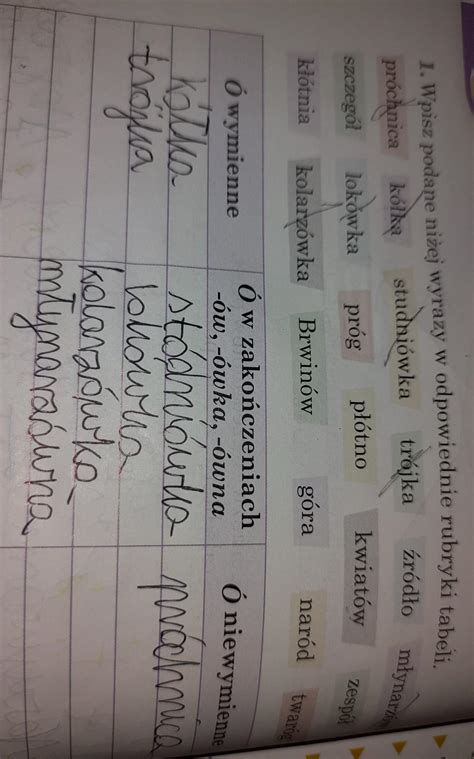 1. Wpisz podane niżej wyrazy w odpowiednie rubryki tabeli.
próchnica kółka studniówka trójka źródło
szczegół lokówka próg płótno kwiatów zespół
kłótnia kolarzówka Brwinów góra naród twaróg
Ó wymienne Ó w zakończeniach Ó niewymienne
-ów, -ówka, -ówna
kółka stódniówka próchnica
trójka lokówka
kolarzówka
młynarzówna